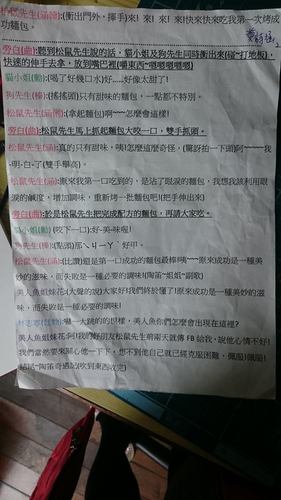 松鼠先生(涵翰):(衝出門外、揮手)來! 來! 來! 來!快來快來吃我第一次烤成
功麵包。
旁白(曲):聽到松鼠先生說的話，貓小姐及狗先生同時衝出來(碰~打地板)，
快速的伸手去拿，放到嘴裡(嚼東西~嗯嗯嗯嗯嗯)
貓小姐(勳):(喝了好幾口水)好....好像太甜了!
狗先生(棒):(搖搖頭)只有甜味的麵包，一點都不特別。
松鼠先生(涵):(拿起麵包)啊~~~怎麼會這樣!
旁白(曲):松鼠先生馬上抓起麵包大咬一口，雙手抓頭。
松鼠先生(涵):真的只有甜味，咦!怎麼這麼奇怪，(驚訝拍一下頭)阿~~~~~我
~明-白-了(雙手舉高)。
松鼠先生(涵):原來我第一口吃到的，是沾了眼淚的麵包，我想我該利用眼
淚的鹹度，增加調味、重新烤一批麵包吧!(把手伸出來)
旁白(曲):於是松鼠先生把完成配方的麵包，再請大家吃。
貓小姐(勳):(咬下一口):好-美-味喔!
狗先生(棒):(點頭)那ㄟㄐㄧㄚˋ好甲。
松鼠先生(涵):(比讚)還是第一口成功的麵包最棒!咦~~原來成功是一種美
妙的滋味，而失敗是一種必要的調味!(陶笛~姐姐~副歌)
美人魚姐妹花:(大聲的說)大家好!我們終於懂了!原來成功是一種美妙的滋
味，而失敗是一種必要的調味!
:嚇一大跳的的模樣，美人魚你們怎麼會出現在這裡?
美人魚姐妹花:阿!我的好朋友松鼠先生前兩天就傳 FB 給我，說他心情不好!
我們當然要來關心他一下下，想不到他自己就已經克服困難，佩服!佩服!
結尾~陶笛奇遇記(吹到東西收完)